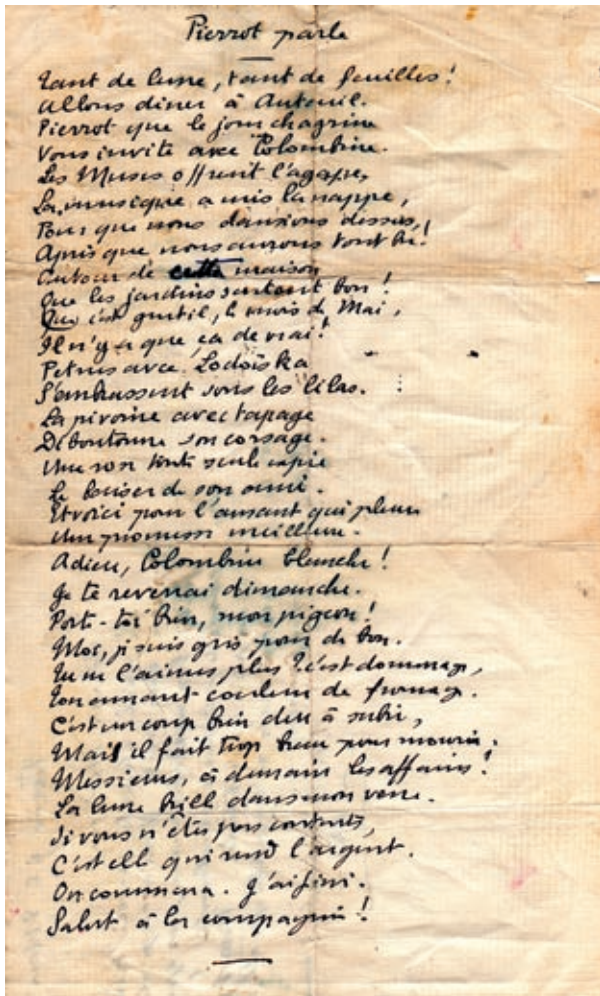 Pierrot parle
Tant de lune, tant de feuilles !
Allons dîner à Auteuil.
Pierrot que le jour chagrine
Vous invite avec Colombine.
Les Muses offrent l'agape,
La musique a mis la nappe,
Pour que nous dansions dessus,
Après que nous aurons tout bu !
Autour de cette maison
Que les jardins sentent bon !
Que c'est gentil, le mois de Mai,
Il n'y a que ça de vrai !
Petrus avec Lodoïska
S'embrassent sous les lilas.
La pivoine avec tapage
Déboutonne son corsage.
Une rose toute seule expie
Le baiser de son ami.
Et voici pour l'amant qui pleure
Une promesse meilleure.
Adieu, Colombine blanche !
Je te reverrai dimanche.
Porte-toi bien, mon pigeon !
Moi, je suis gris pour de bon.
Tu ne l'aimes plus ? c'est dommage,
Ton amant couleur de fromage.
C'est un coup bien dur à subir,
Mais il fait trop beau pour mourir.
Messieurs, à demain les affaires !
La lune brille dans mon verre.
Si vous n'êtes pas contents,
C'est elle qui rend l'argent.
On commence. J'ai fini.
Salut à la compagnie !